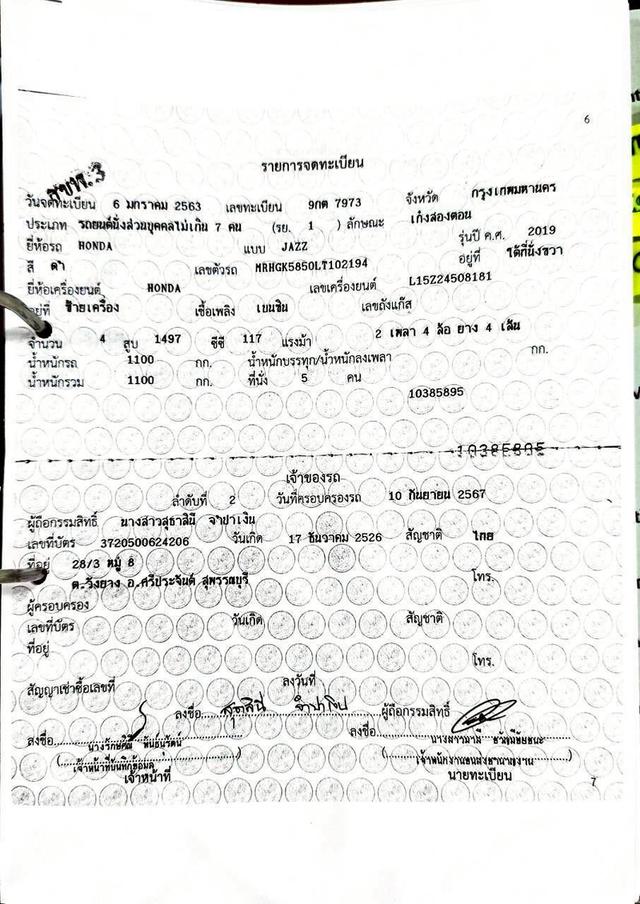 6
รายการจดทะเบียน
สขพ.3
วันจดทะเบียน 6 มกราคม 2563 เลขทะเบียน 9กต 7973 จังหวัด กรุงเทพมหานคร
ประเภท รถยนต์นั่งส่วนบุคคลไม่เกิน 7 คน (รย. 1 ) ลักษณะ เก๋งสองตอน
ยี่ห้อรถ HONDA แบบ JAZZ รุ่นปี ค.ศ. 2019
สี ดำ เลขตัวรถ MRHGK5850LT102194 อยู่ที่ ใต้ที่นั่งขวา
ยี่ห้อเครื่องยนต์ HONDA เลขเครื่องยนต์ L15Z24508181
อยู่ที่ ซ้ายเครื่อง เชื้อเพลิง เบนซิน เลขถังแก๊ส
จำนวน 4 สูบ 1497 ซีซี 117 แรงม้า 2 เพลา 4 ล้อ ยาง 4 เส้น
น้ำหนักรถ 1100 กก. น้ำหนักบรรทุก/น้ำหนักลงเพลา กก.
น้ำหนักรวม 1100 กก. ที่นั่ง 5 คน
10385895
10385895
เจ้าของรถ
ลำดับที่ 2 วันที่ครอบครองรถ 10 กันยายน 2567
ผู้ถือกรรมสิทธิ์ นางสาวสุธาสินี จำปาเงิน
เลขที่บัตร 3720500624206 วันเกิด 17 ธันวาคม 2526 สัญชาติ ไทย
ที่อยู่ 28/3 หมู่ 8
ต.วังยาง อ.ศรีประจันต์ สุพรรณบุรี โทร.
ผู้ครอบครอง
เลขที่บัตร วันเกิด สัญชาติ
ที่อยู่
โทร.
สัญญาเช่าซื้อเลขที่ ลงวันที่
ลงชื่อ ผู้ถือกรรมสิทธิ์
ลงชื่อ ลงชื่อ
เจ้าหน้าที่บันทึกข้อมูล
เจ้าหน้าที่ นายทะเบียน
7